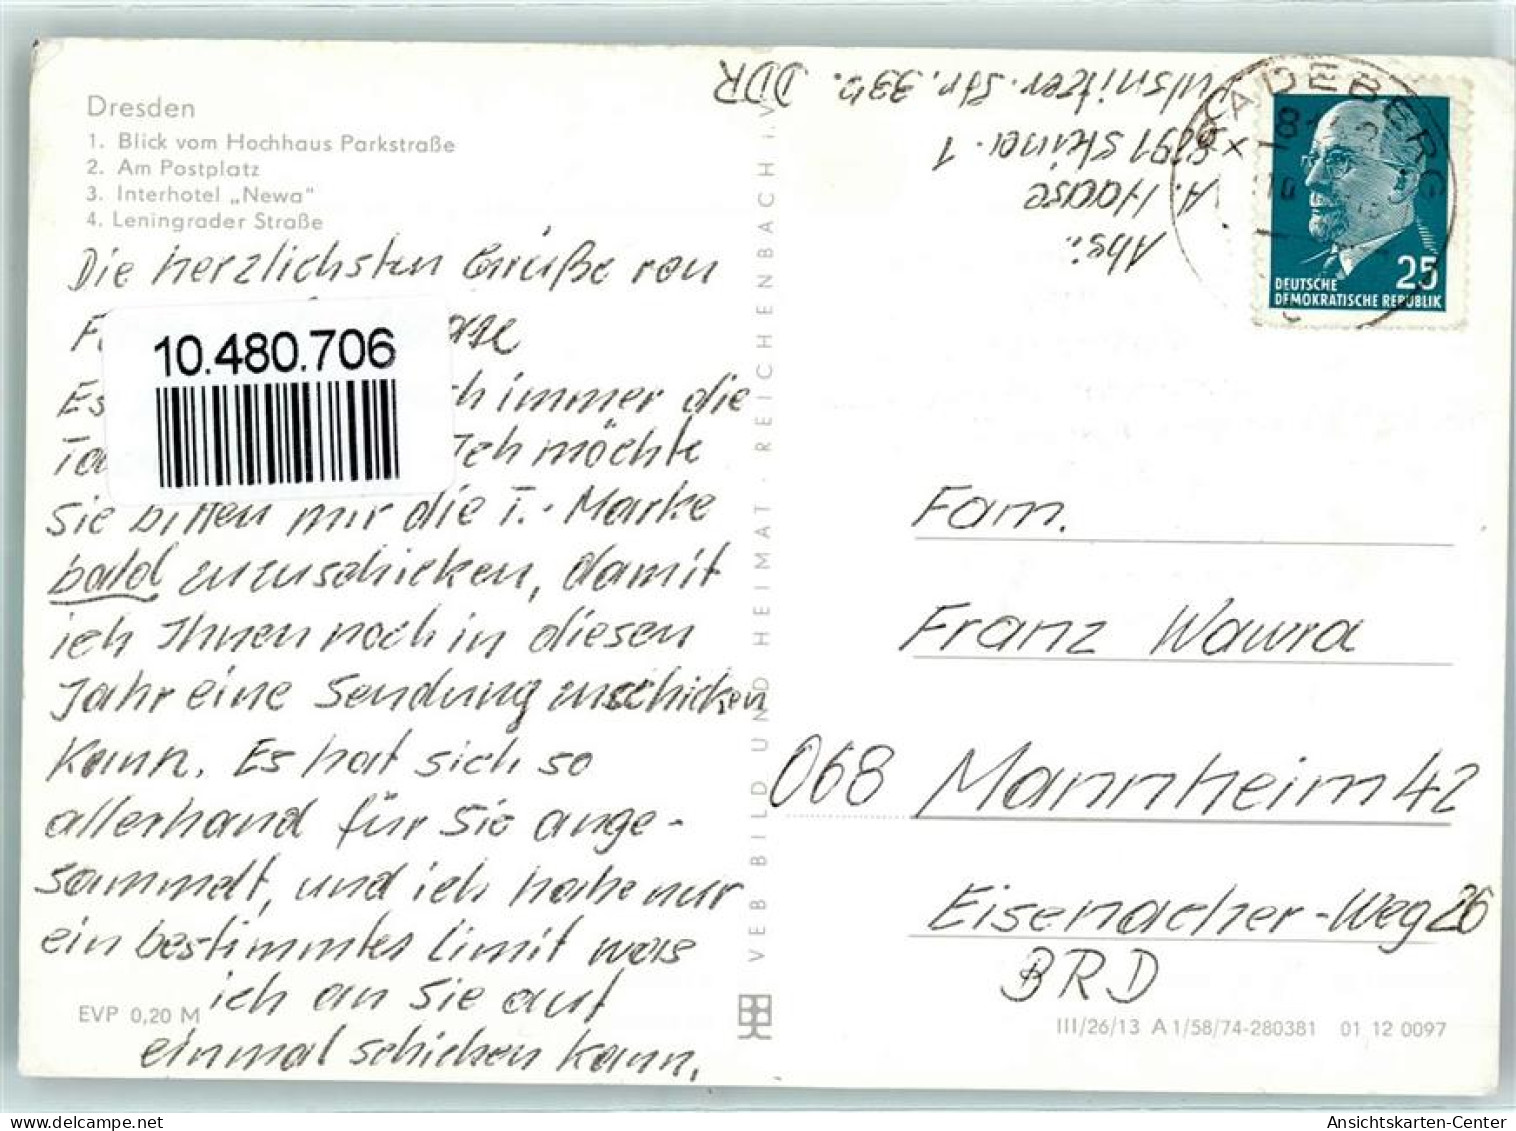 Dresden
1. Blick vom Hochhaus Parkstraße
2. Am Postplatz
3. Interhotel „Newa"
4. Leningrader Straße
Die herzlichsten Grüße von
10.480.706
Es immer die
Ich möchte
Sie bitten mir die T.-Marke
bald zuzuschicken, damit
ich Ihnen noch in diesen
Jahr eine Sendung zuschicken
kann. Es hat sich so
allerhand für Sie ange-
sammelt, und ich habe nur
ein bestimmtes Limit was
ich an Sie auf
einmal schicken kann.
EVP 0,20 M
VEB BILD UND HEIMAT · REICHENBACH i. V.
Abs.:
A. Haase
x 8291 Steina 1
Pulsnitzer-Str. 33b. DDR
RADEBERG
DEUTSCHE
DEMOKRATISCHE REPUBLIK
25
Fam.
Franz Wawra
068 Mannheim 42
Eisenacher-Weg 26
BRD
III/26/13 A 1/58/74-280381 01 12 0097
delcampe.net
Ansichtskarten-Center